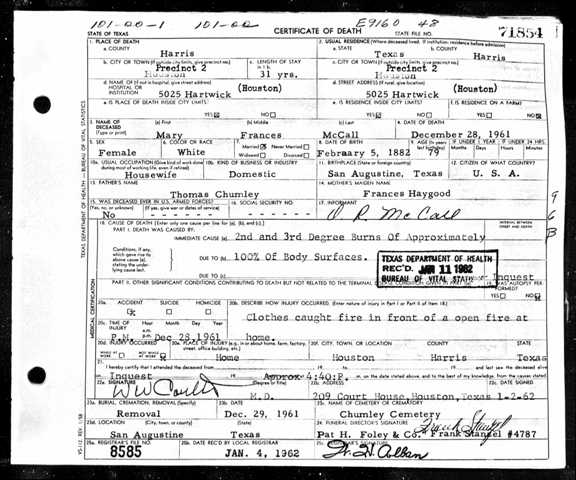 101-00-1 101-00 E9160 48
STATE OF TEXAS CERTIFICATE OF DEATH 71854
1. PLACE OF DEATH 2. USUAL RESIDENCE (Where deceased lived. If institution, residence before admission)
a. COUNTY Harris a. STATE Texas b. COUNTY Harris
b. CITY OR TOWN (If outside city limits, give precinct no.) c. LENGTH OF STAY in 1 b. c. CITY OR TOWN (If outside city limits, give precinct no.)
Precinct 2 Precinct 2
Houston 31 yrs. Houston
d. NAME OF (If not in hospital, give street address) d. STREET ADDRESS (If rural, give location)
HOSPITAL OR INSTITUTION 5025 Hartwick (Houston) 5025 Hartwick (Houston)
e. IS PLACE OF DEATH INSIDE CITY LIMITS? YES NO e. IS RESIDENCE INSIDE CITY LIMITS? YES NO f. IS RESIDENCE ON A FARM? YES NO
3. NAME OF DECEASED (Type or print) (a) First (b) Middle (c) Last 4. DATE OF DEATH
Mary Frances McCall December 28, 1961
5. SEX 6. COLOR OR RACE 7. Married Never Married Widowed Divorced 8. DATE OF BIRTH 9. AGE (In years last birthday) IF UNDER 1 YEAR Months Days IF UNDER 24 HRS. Hours Minutes
Female White February 5, 1882 79
10a. USUAL OCCUPATION (Give kind of work done during most of working life, even if retired) 10b. KIND OF BUSINESS OR INDUSTRY 11. BIRTHPLACE (State or foreign country) 12. CITIZEN OF WHAT COUNTRY?
Housewife Domestic San Augustine, Texas U. S. A.
13. FATHER'S NAME 14. MOTHER'S MAIDEN NAME
Thomas Chumley Frances Haygood
15. WAS DECEASED EVER IN U.S. ARMED FORCES? 16. SOCIAL SECURITY NO. 17. INFORMANT
(Yes, no, or unknown) (If yes, give war or dates of service)
No McCall
18. CAUSE OF DEATH (Enter only one cause per line for (a), (b), and (c).) INTERVAL BETWEEN ONSET AND DEATH
PART I. DEATH WAS CAUSED BY:
IMMEDIATE CAUSE (a) 2nd and 3rd Degree Burns Of Approximately
Conditions, if any, which gave rise to above cause (a), stating the underlying cause last.
DUE TO (b) 100% Of Body Surfaces.
DUE TO (c)
TEXAS DEPARTMENT OF HEALTH
REC'D. JAN 11 1962
BUREAU OF VITAL STATISTICS
Inquest
PART II. OTHER SIGNIFICANT CONDITIONS CONTRIBUTING TO DEATH BUT NOT RELATED TO THE TERMINAL 19. WAS AUTOPSY PERFORMED? YES NO
20a. ACCIDENT SUICIDE HOMICIDE 20b. DESCRIBE HOW INJURY OCCURRED. (Enter nature of injury in Part I or Part II of item 18.)
Clothes caught fire in front of a open fire at
20c. TIME OF INJURY Hour Month Day Year
P.M. Dec 28 1961 home.
20d. INJURY OCCURRED 20e. PLACE OF INJURY (e.g., in or about home, farm, factory, street, office building, etc.) 20f. CITY, TOWN, OR LOCATION COUNTY STATE
WHILE AT WORK NOT WHILE AT WORK Home Houston Harris Texas
21. I hereby certify that I attended the deceased from and last saw the deceased alive
Inquest Approx 4:40P. m. on the date stated above, and to the best of my knowledge, from the causes stated.
22a. SIGNATURE (Degree or title) 22b. ADDRESS 22c. DATE SIGNED
M.D. 209 Court House, Houston, Texas 1-2-62
23a. BURIAL, CREMATION, REMOVAL (Specify) 23b. DATE 23c. NAME OF CEMETERY OR CREMATORY
Removal Dec. 29, 1961 Chumley Cemetery
23d. LOCATION (City, town, or county) (State) 24. FUNERAL DIRECTOR'S SIGNATURE
San Augustine Texas Pat H. Foley & Co. Frank Stangel #4787
25a. REGISTRAR'S FILE NO. 25b. DATE REC'D BY LOCAL REGISTRAR 25c. REGISTRAR'S SIGNATURE
8585 JAN. 4, 1962
TEXAS DEPARTMENT OF HEALTH - BUREAU OF VITAL STATISTICS
MEDICAL CERTIFICATION